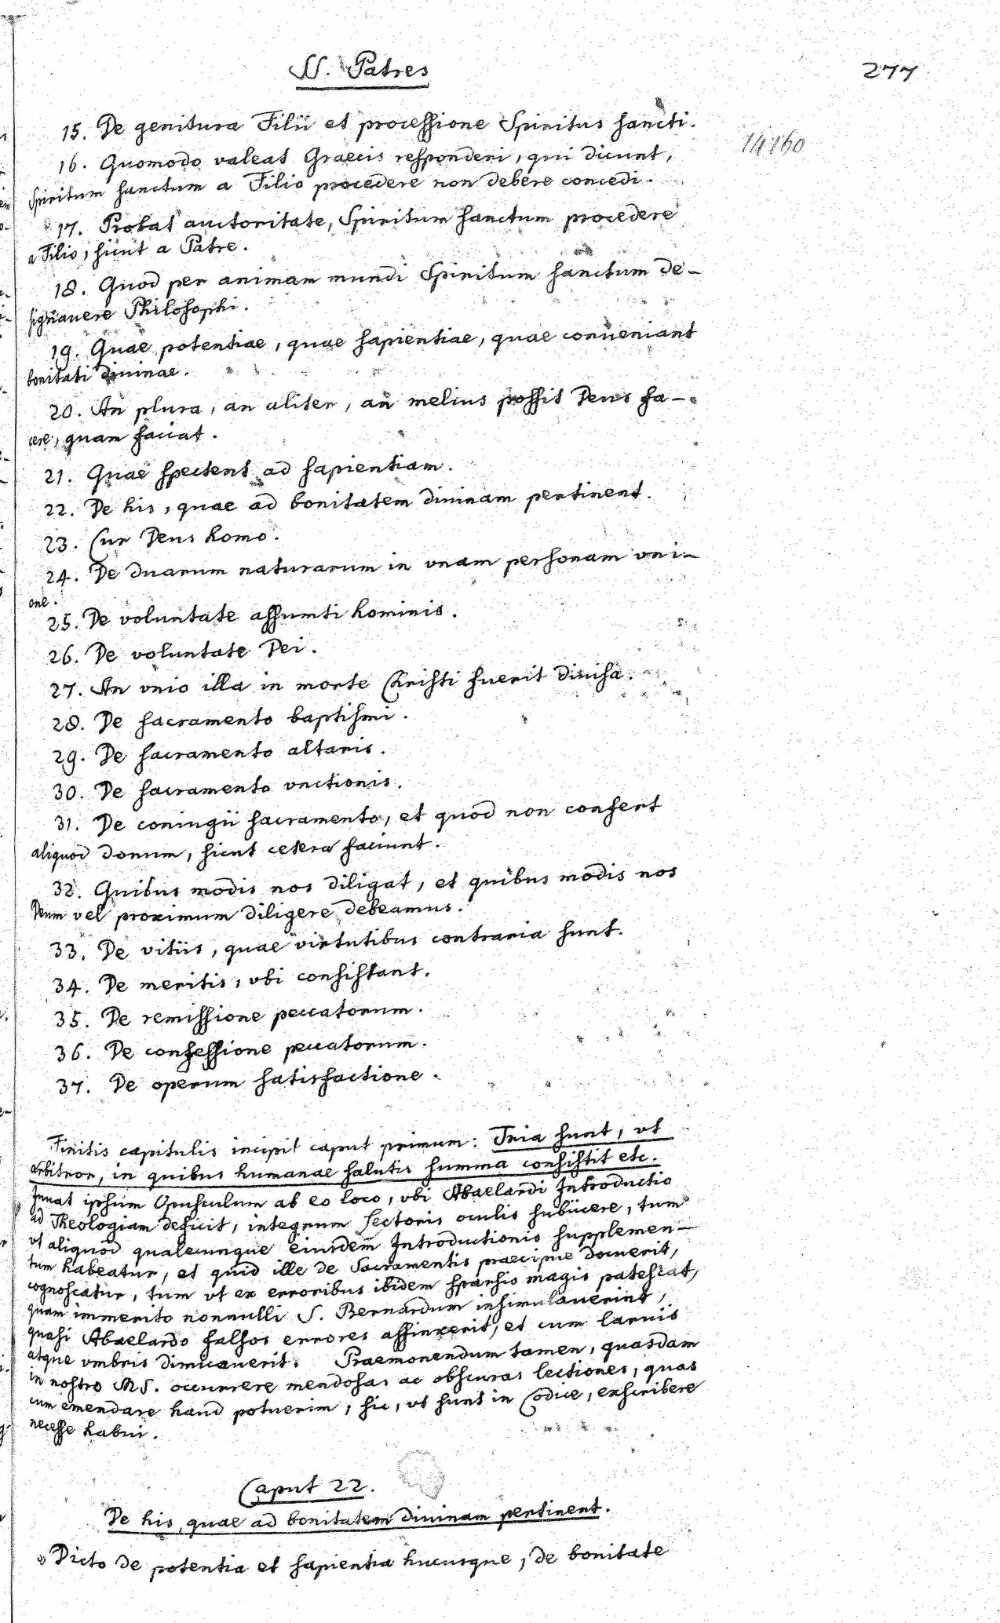 SS. Patres
277
15. De genitura Filii et processione Spiritus sancti.
14160
16. Quomodo valeat Graecis responderi, qui dicunt,
Spiritum sanctum a Filio procedere non debere concedi.
17. Probat auctoritate, Spiritum sanctum procedere
a Filio, sicut a Patre.
18. Quod per animam mundi Spiritum sanctum de-
signavere Philosophi.
19. Quae potentiae, quae sapientiae, quae conveniant
bonitati divinae.
20. An plura, an aliter, an melius possit Deus fa-
cere, quam faciat.
21. Quae spectent ad sapientiam.
22. De his, quae ad bonitatem divinam pertinent.
23. Cur Deus homo.
24. De duarum naturarum in vnam personam vni-
one.
25. De voluntate assumti hominis.
26. De voluntate Dei.
27. An vnio illa in morte Christi fuerit divisa.
28. De sacramento baptismi.
29. De sacramento altaris.
30. De sacramento vnctionis.
31. De coniugii sacramento, et quod non confert
aliquod donum, sicut cetera faciunt.
32. Quibus modis nos diligat, et quibus modis nos
Deum vel proximum diligere debeamus.
33. De vitiis, quae virtutibus contraria sunt.
34. De meritis, vbi consistant.
35. De remissione peccatorum.
36. De confessione peccatorum.
37. De operum satisfactione.
Finitis capitulis incipit caput primum: Tria sunt, vt
arbitror, in quibus humanae salutis summa consistit etc.
Juvat ipsum Opusculum ab eo loco, vbi Abaelardi Introductio
ad Theologiam deficit, integrum Lectoris oculis subiicere, tum
vt aliquod qualecunque eiusdem Introductionis supplemen-
tum habeatur, et quid ille de Sacramentis praecipue docuerit,
cognoscatur, tum vt ex erroribus ibidem sparsis magis patescat,
quam immerito nonnulli S. Bernardum insimulaverint,
quasi Abaelardo falsos errores affinxerit, et cum larvis
atque vmbris dimicaverit. Praemonendum tamen, quasdam
in nostro MS. occurrere mendosas ac obscuras lectiones, quas
cum emendare haud potuerim, sic, vt sunt in Codice, exscribere
necesse habui.
Caput 22.
De his, quae ad bonitatem divinam pertinent.
Dicto de potentia et sapientia hucusque, de bonitate